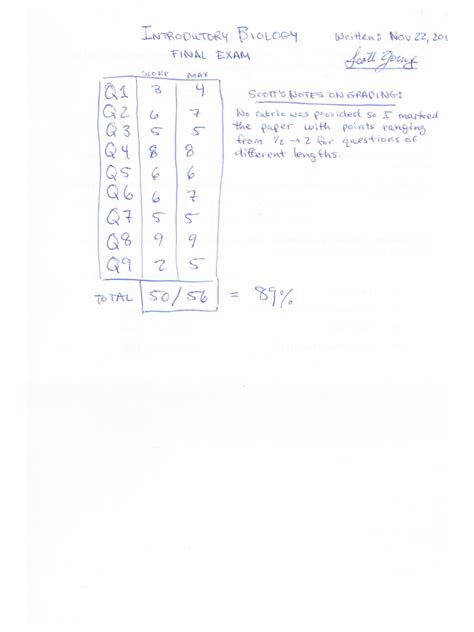 INTRODUTORY BIOLOGY Written: Nov 22, 201
FINAL EXAM Scott Young
SCORE MAX
Q1 3 4
SCOTT'S NOTES ON GRADING:
Q2 6 7
No rubric was provided so I marked
Q3 5 5
the paper with points ranging
Q4 8 8
from 1/2 → 2 for questions of
different lengths.
Q5 6 6
Q6 6 7
Q7 5 5
Q8 9 9
Q9 2 5
TOTAL 50/56 = 89%